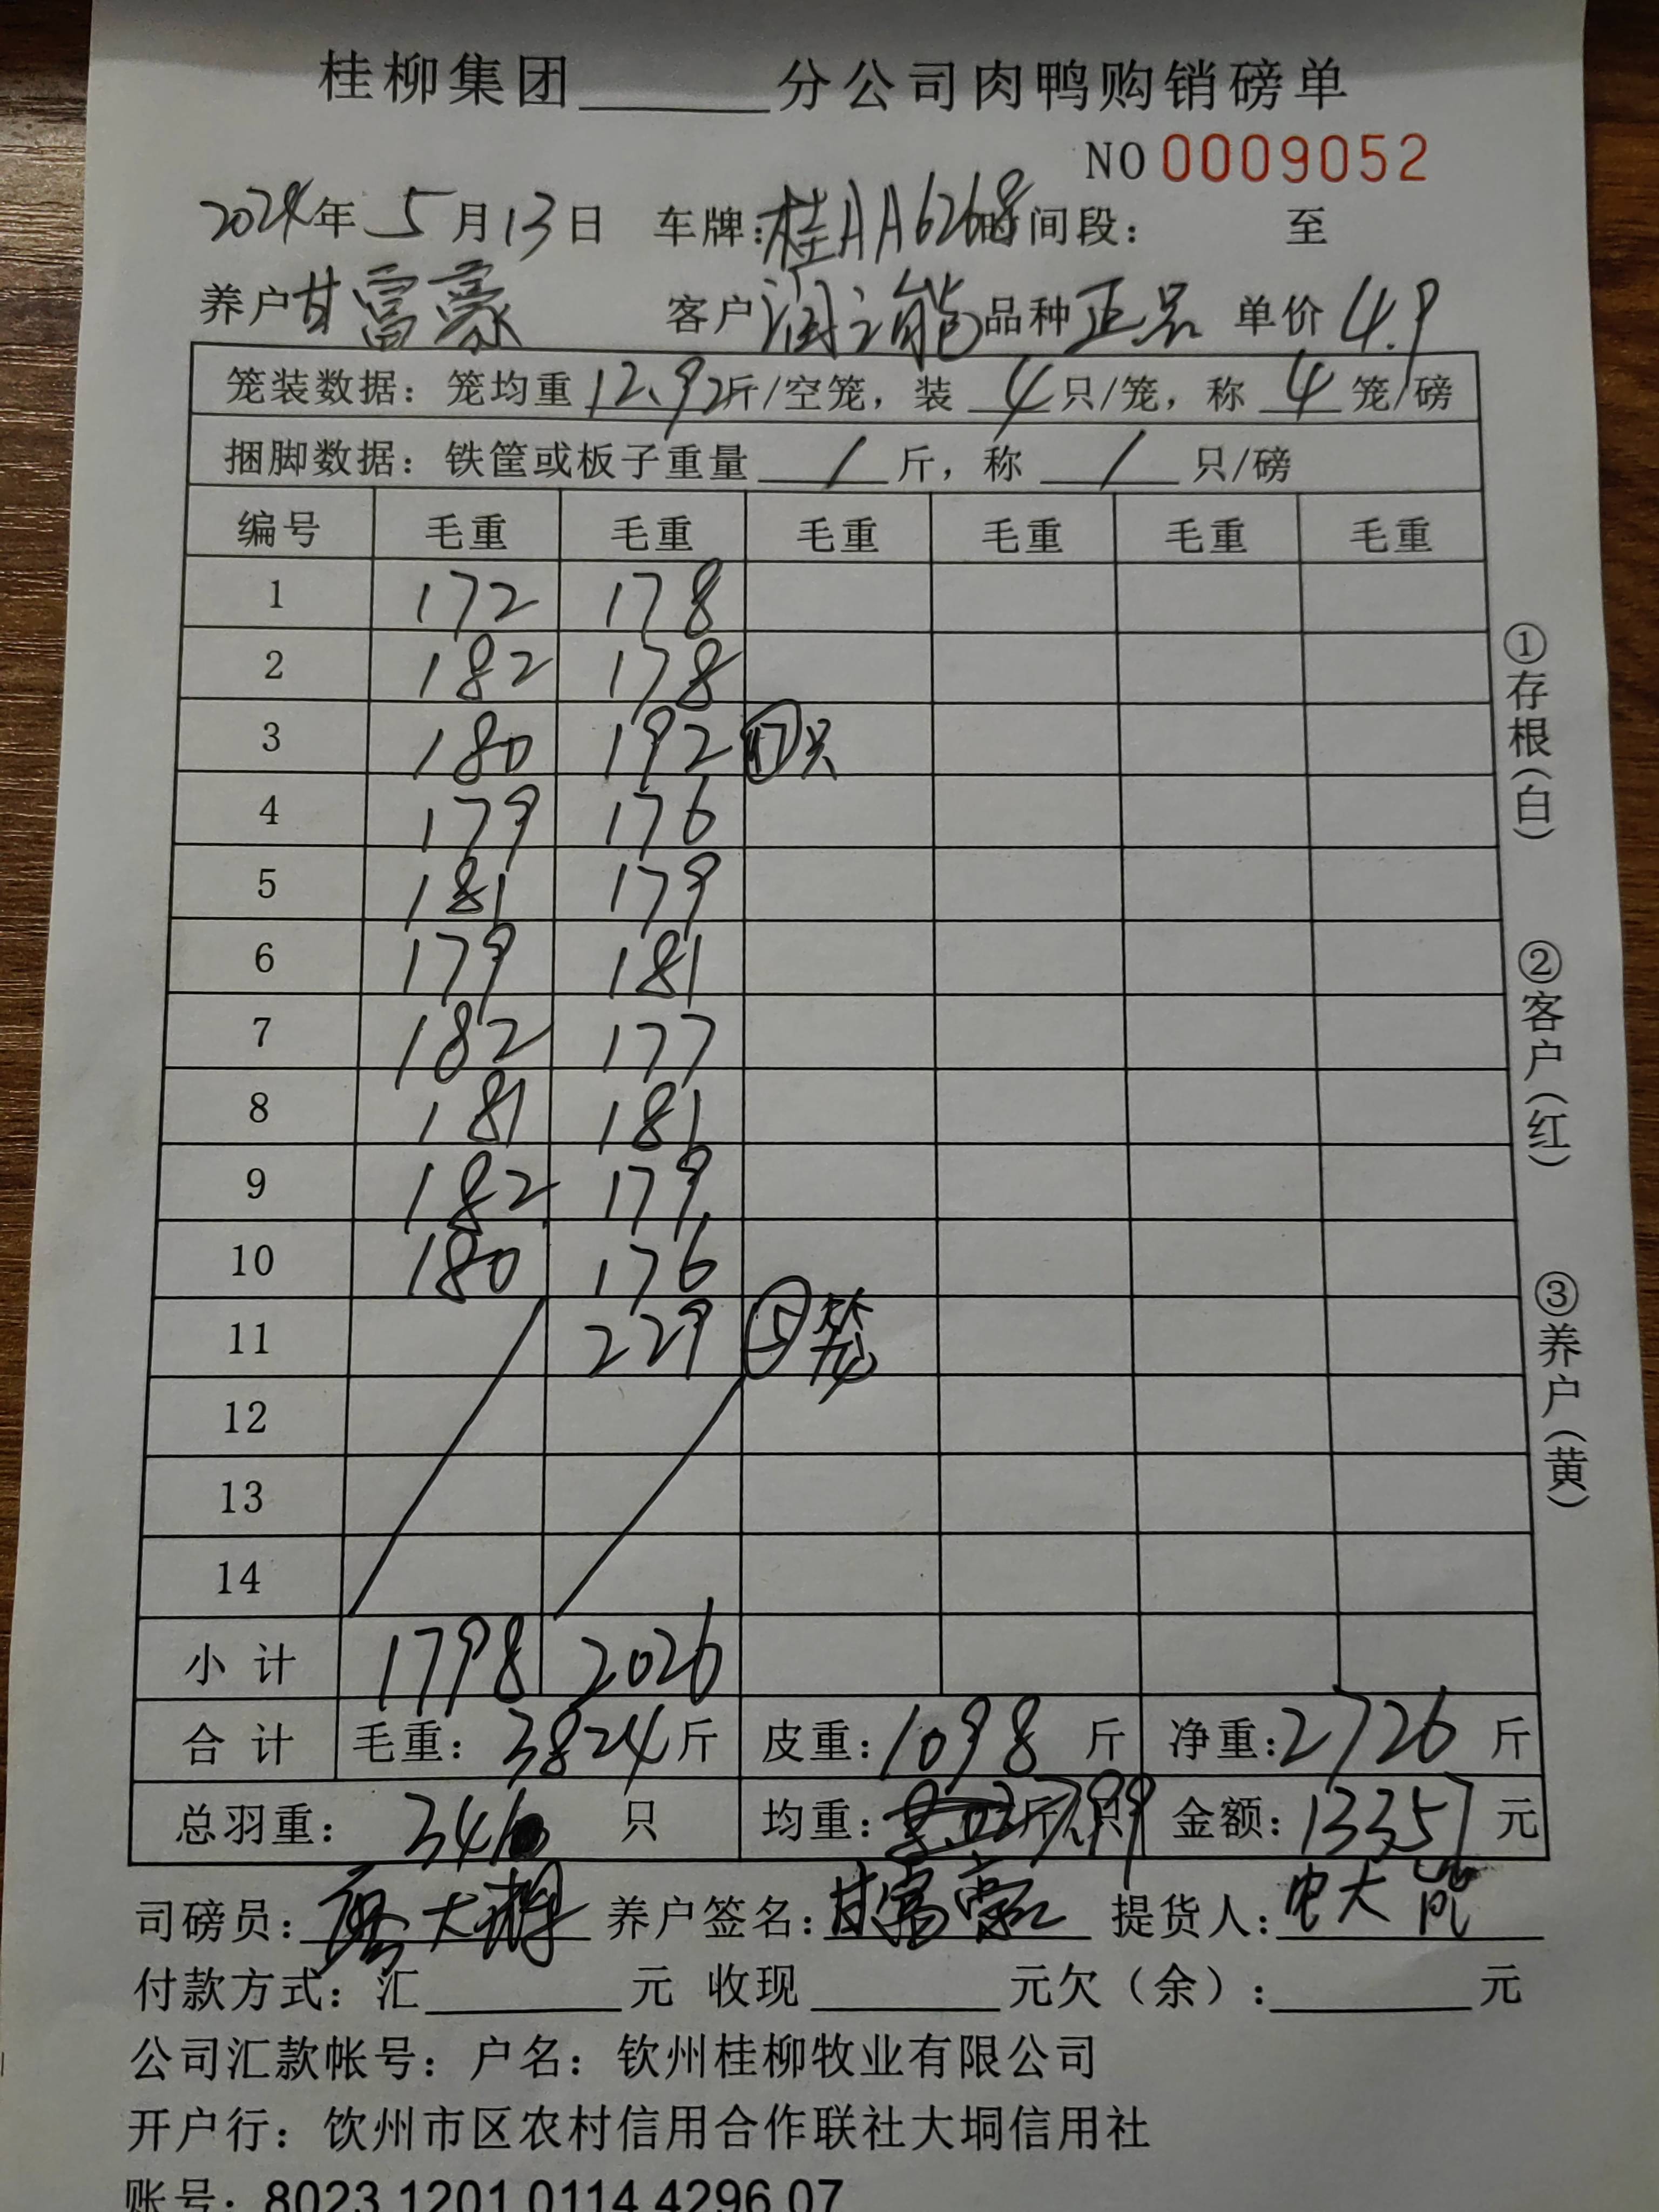 桂柳集团______分公司肉鸭购销磅单
NO 0009052
2024年 5月13日 车牌:桂AA6268 时间段: 至
养户 甘富豪 客户 润之能 品种 正品 单价 4.9
笼装数据: 笼均重 12.92 斤/空笼, 装 4 只/笼, 称 4 笼/磅
捆脚数据: 铁筐或板子重量 / 斤, 称 / 只/磅
编号 毛重 毛重 毛重 毛重 毛重 毛重
1 172 178
2 182 178
3 180 192 ⑰只
4 179 176
5 181 179
6 179 181
7 182 177
8 181 181
9 182 179
10 180 176
11 229 ⑤笼
12
13
14
小计 1798 2026
合计 毛重: 3824斤 皮重: 1098 斤 净重: 2726 斤
总羽重: 341 只 均重: 7.99 斤/只 金额: 13357 元
司磅员: 大 养户签名: 甘富豪 提货人: 大
付款方式: 汇______元 收现______元欠(余):______元
公司汇款帐号: 户名: 钦州桂柳牧业有限公司
开户行: 钦州市区农村信用合作联社大垌信用社
账号: 8023 1201 0114 4296 07
①存根(白)
②客户(红)
③养户(黄)